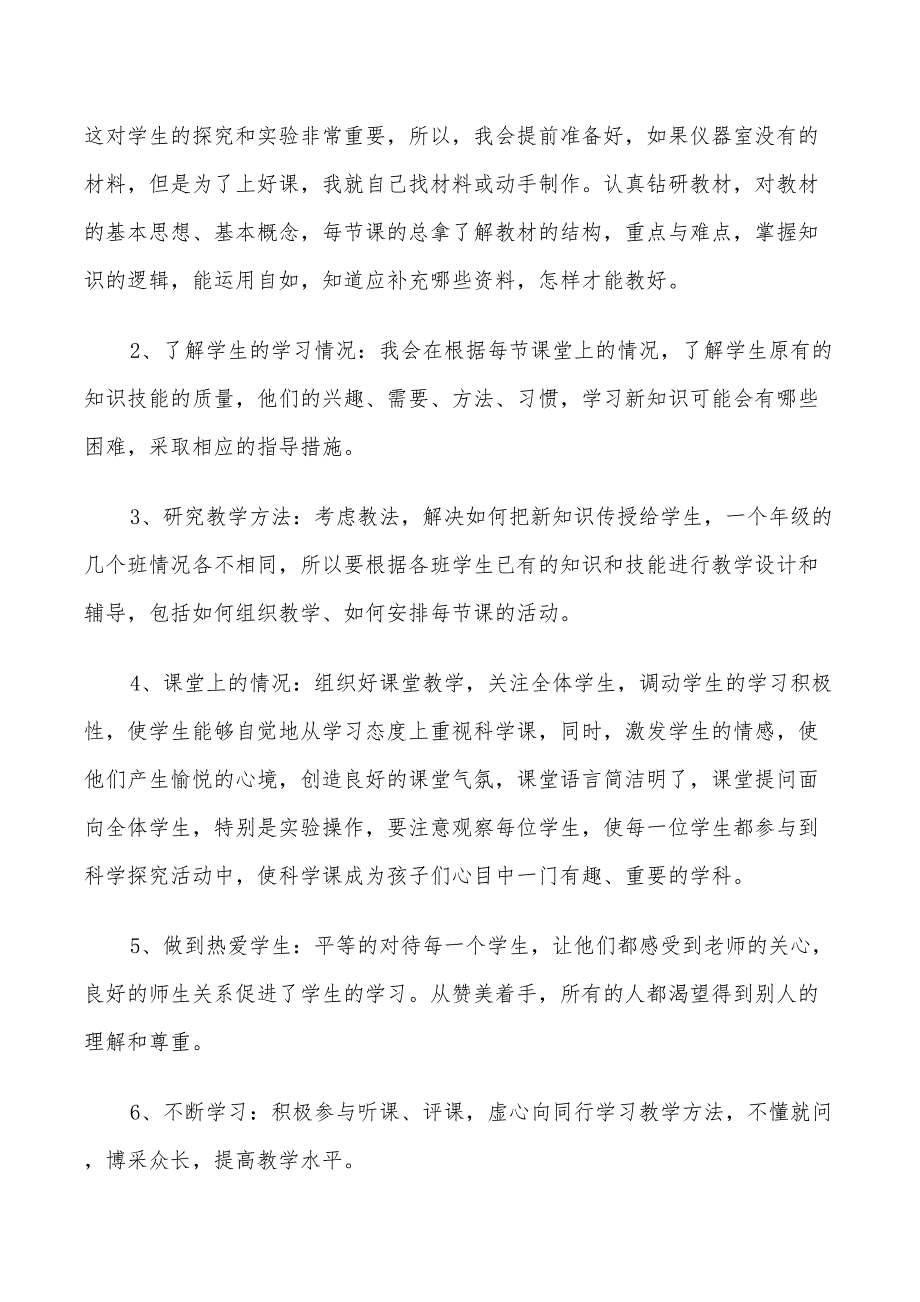 这对学生的探究和实验非常重要，所以，我会提前准备好，如果仪器室没有的
材料，但是为了上好课，我就自己找材料或动手制作。认真钻研教材，对教材
的基本思想、基本概念，每节课的总拿了解教材的结构，重点与难点，掌握知
识的逻辑，能运用自如，知道应补充哪些资料，怎样才能教好。
2、了解学生的学习情况：我会在根据每节课堂上的情况，了解学生原有的
知识技能的质量，他们的兴趣、需要、方法、习惯，学习新知识可能会有哪些
困难，采取相应的指导措施。
3、研究教学方法：考虑教法，解决如何把新知识传授给学生，一个年级的
几个班情况各不相同，所以要根据各班学生已有的知识和技能进行教学设计和
辅导，包括如何组织教学、如何安排每节课的活动。
4、课堂上的情况：组织好课堂教学，关注全体学生，调动学生的学习积极
性，使学生能够自觉地从学习态度上重视科学课，同时，激发学生的情感，使
他们产生愉悦的心境，创造良好的课堂气氛，课堂语言简洁明了，课堂提问面
向全体学生，特别是实验操作，要注意观察每位学生，使每一位学生都参与到
科学探究活动中，使科学课成为孩子们心目中一门有趣、重要的学科。
5、做到热爱学生：平等的对待每一个学生，让他们都感受到老师的关心，
良好的师生关系促进了学生的学习。从赞美着手，所有的人都渴望得到别人的
理解和尊重。
6、不断学习：积极参与听课、评课，虚心向同行学习教学方法，不懂就问
，博采众长，提高教学水平。